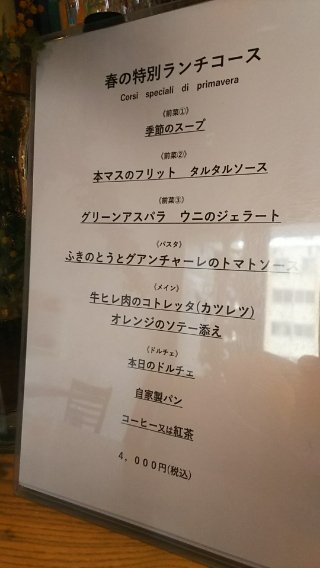 春の特別ランチコース
Corsi speciali di primavera
(前菜①)
季節のスープ
(前菜②)
本マスのフリット　タルタルソース
(前菜③)
グリーンアスパラ　ウニのジェラート
(パスタ)
ふきのとうとグアンチャーレのトマトソース
(メイン)
牛ヒレ肉のコトレッタ(カツレツ)
オレンジのソテー添え
(ドルチェ)
本日のドルチェ
自家製パン
コーヒー又は紅茶
4，000円(税込)